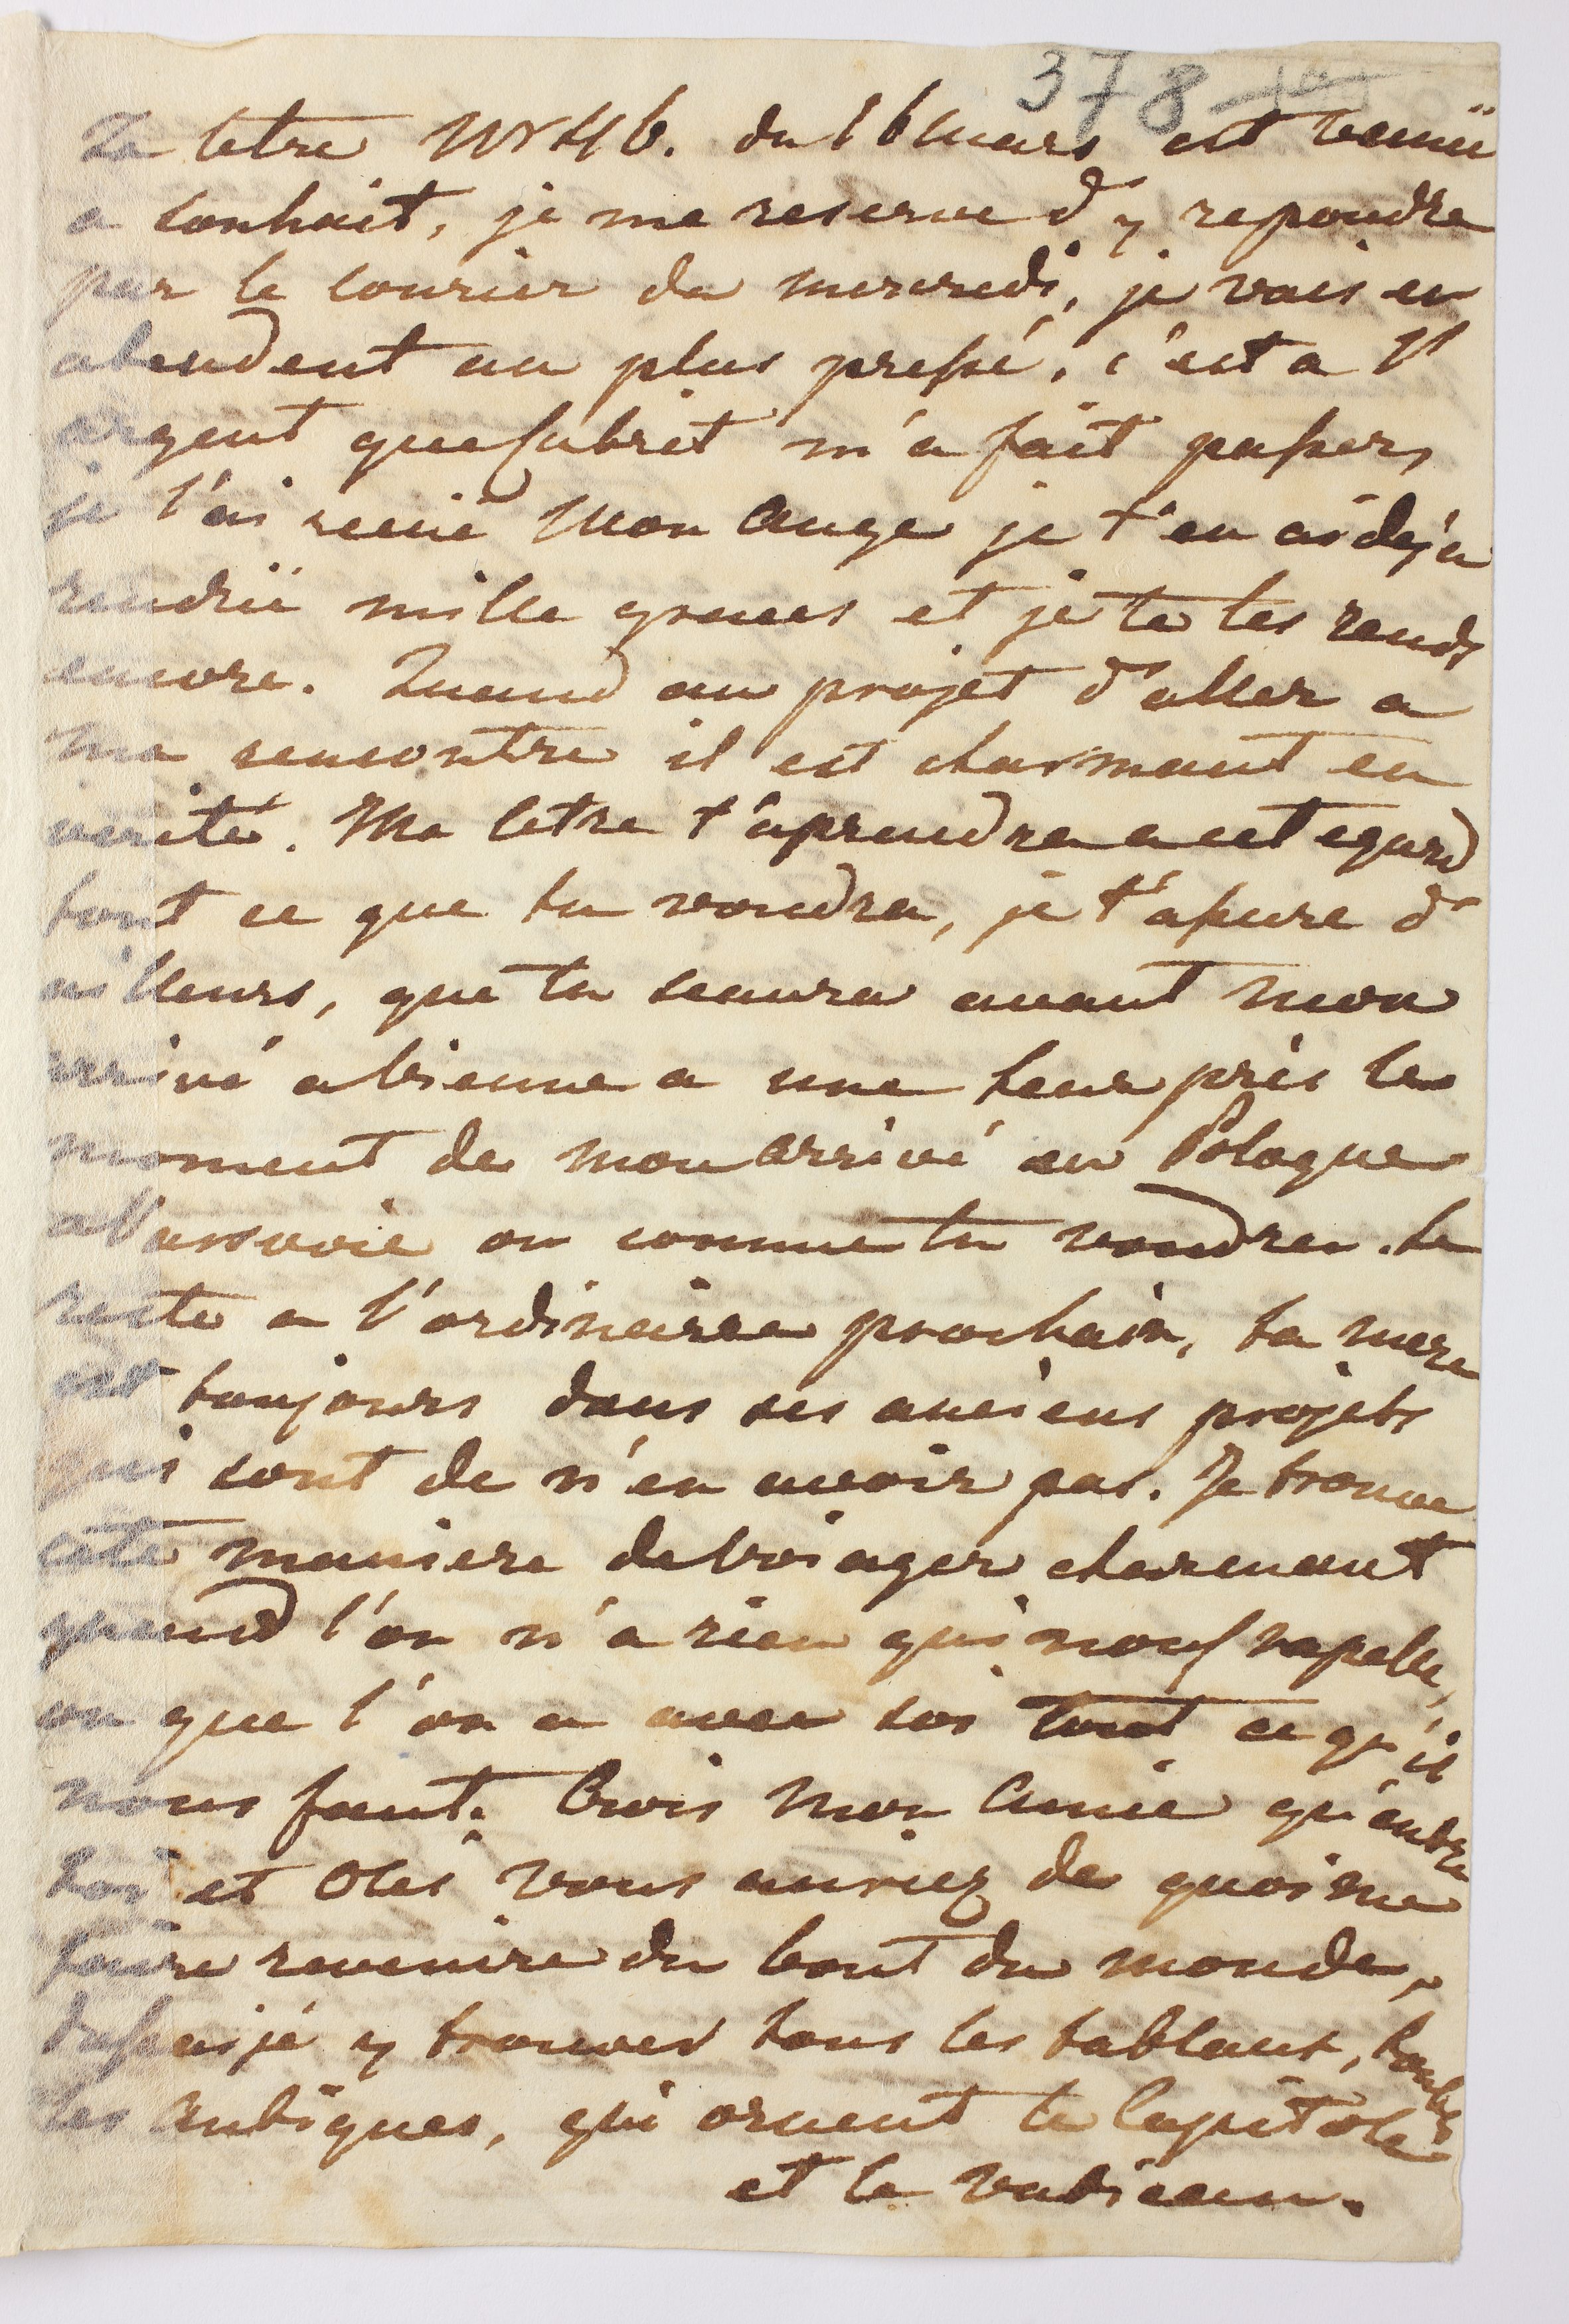 378
Ta letre Nr 46. du 16 mars est venuü
a souhait, je me reserve d'y repondre
par le courier du mercredi, je vais en
atendent au plus pressé, c'est a l'
argent que Cabrit m'a fait passer,
je l'ai recüe Mon Ange je t'en ai deja
rendüe mille graces et je te les rends
encore. Quand au projet d'aller a
ma rencontre il est charmant en
verité. Ma letre t'aprendra a cet egard
tout ce que tu voudra, je t'assure d'
ailleurs, que tu scaura avant mon
arrivé a Vienne a une heur près le
moment de mon arrivé en Pologne
a Varsovie ou comme tu voudra. Le
reste a l'ordinairea prochain, ta mere
est toujours dans ses anciens projets
qui sont de n'en avoir pas. Je trouve
cete maniere de voiager charmant
quand l'on n'a rien qui nous rapelle,
ou que l'on a avec soi tout ce qu'il
nous faut. Crois mon Amie qu'entre
toi et Oles vous auriez de quoi me
faire revenire du bout du monde,
dussai je y trouver tous les tablaux, toutes
les Antiques, qui ornent le Capitole
et le vatican.